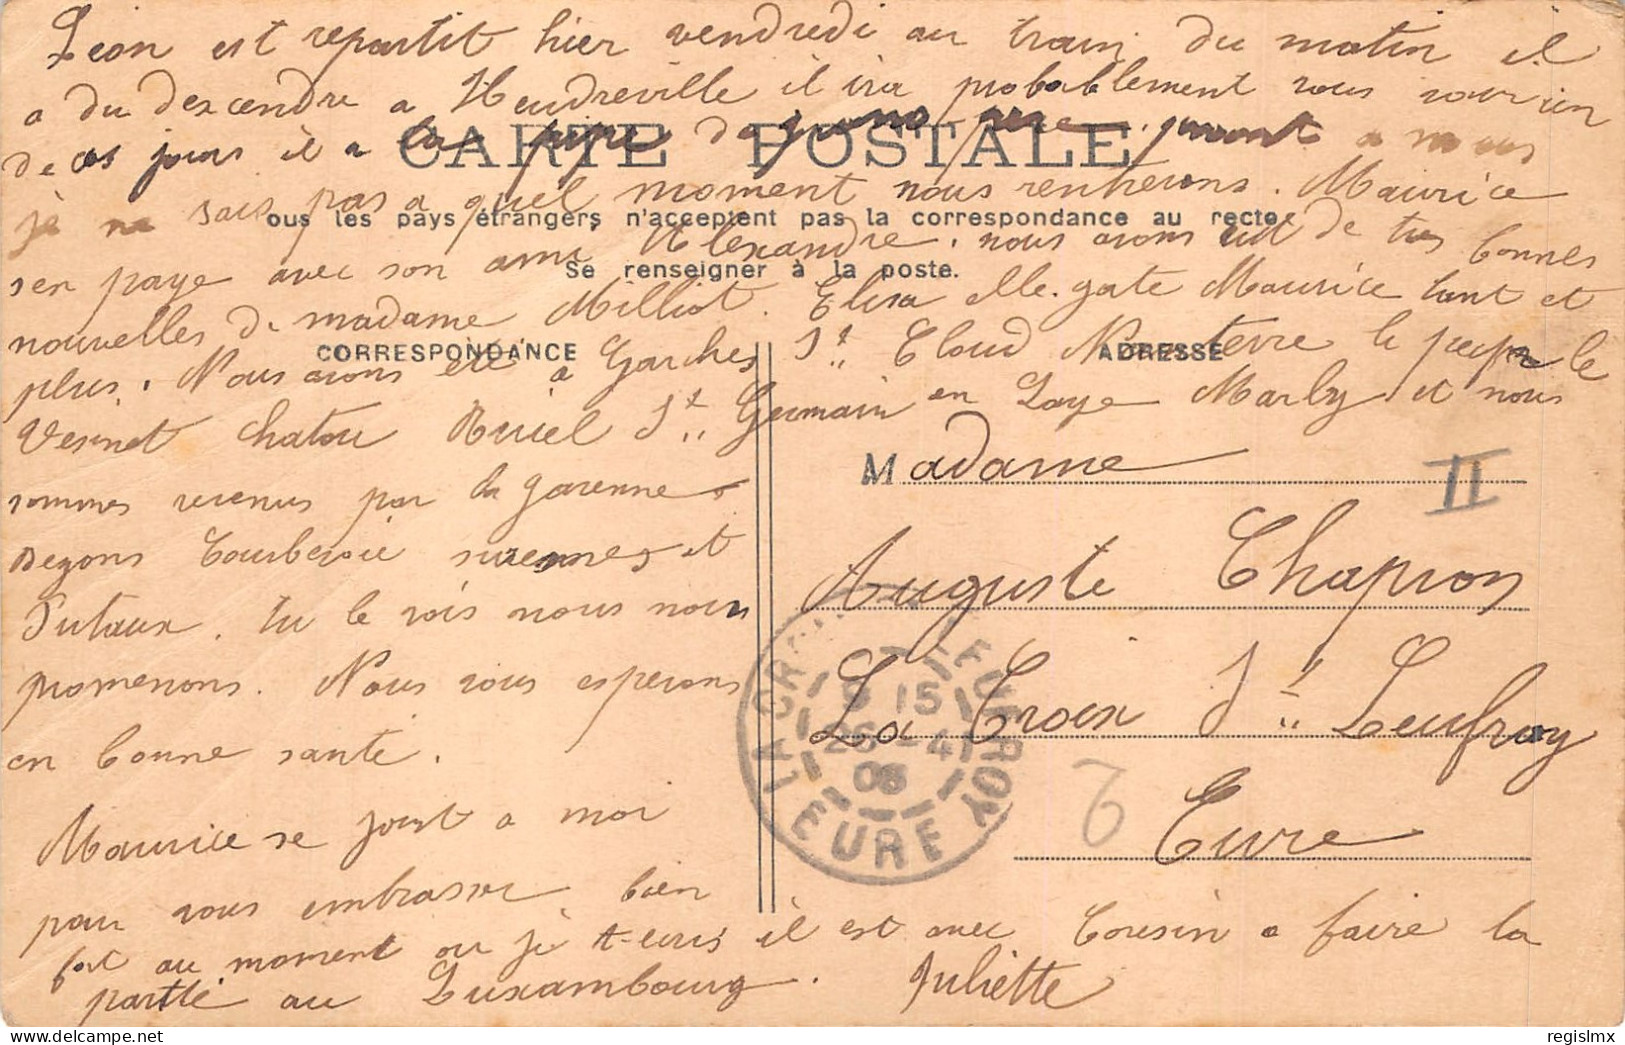 Léon est repartit hier vendredi au train du matin il
a du descendre a Heudreville il ira probablement vous voir un
de ces jours il a la pipe de
CARTE POSTALE
je ne sais pas a quel moment nous renherons. Maurice
ous les pays étrangers n'acceptent pas la correspondance au recto
sen paye avec son ami Alexandre. nous avons de tres bonnes
Se renseigner à la poste.
nouvelles de madame Milliot. Elisa elle gate Maurice tant et
CORRESPONDANCE
ADRESSE
plus. Nous avons été a Garches St Cloud Nanterre le pecq le
Vesinet Chatou Rueil St Germain en Laye Marly et nous
sommes revenus par la garenne
Bezons Courbevoie suresnes et
Putaux. tu le vois nous nous
promenons. Nous vous esperons
en bonne santé.
Maurice se joint a moi
pour vous embrasser bien
fort au moment ou je t-ecris il est avec Cousin a faire la
partie au Luxambourg. Juliette
Madame
II
Auguste Chapron
La Croix St Leufroy
Eure
LA CROIX ST LEUFROY
8 15
26 - 4
08
EURE
regislmx